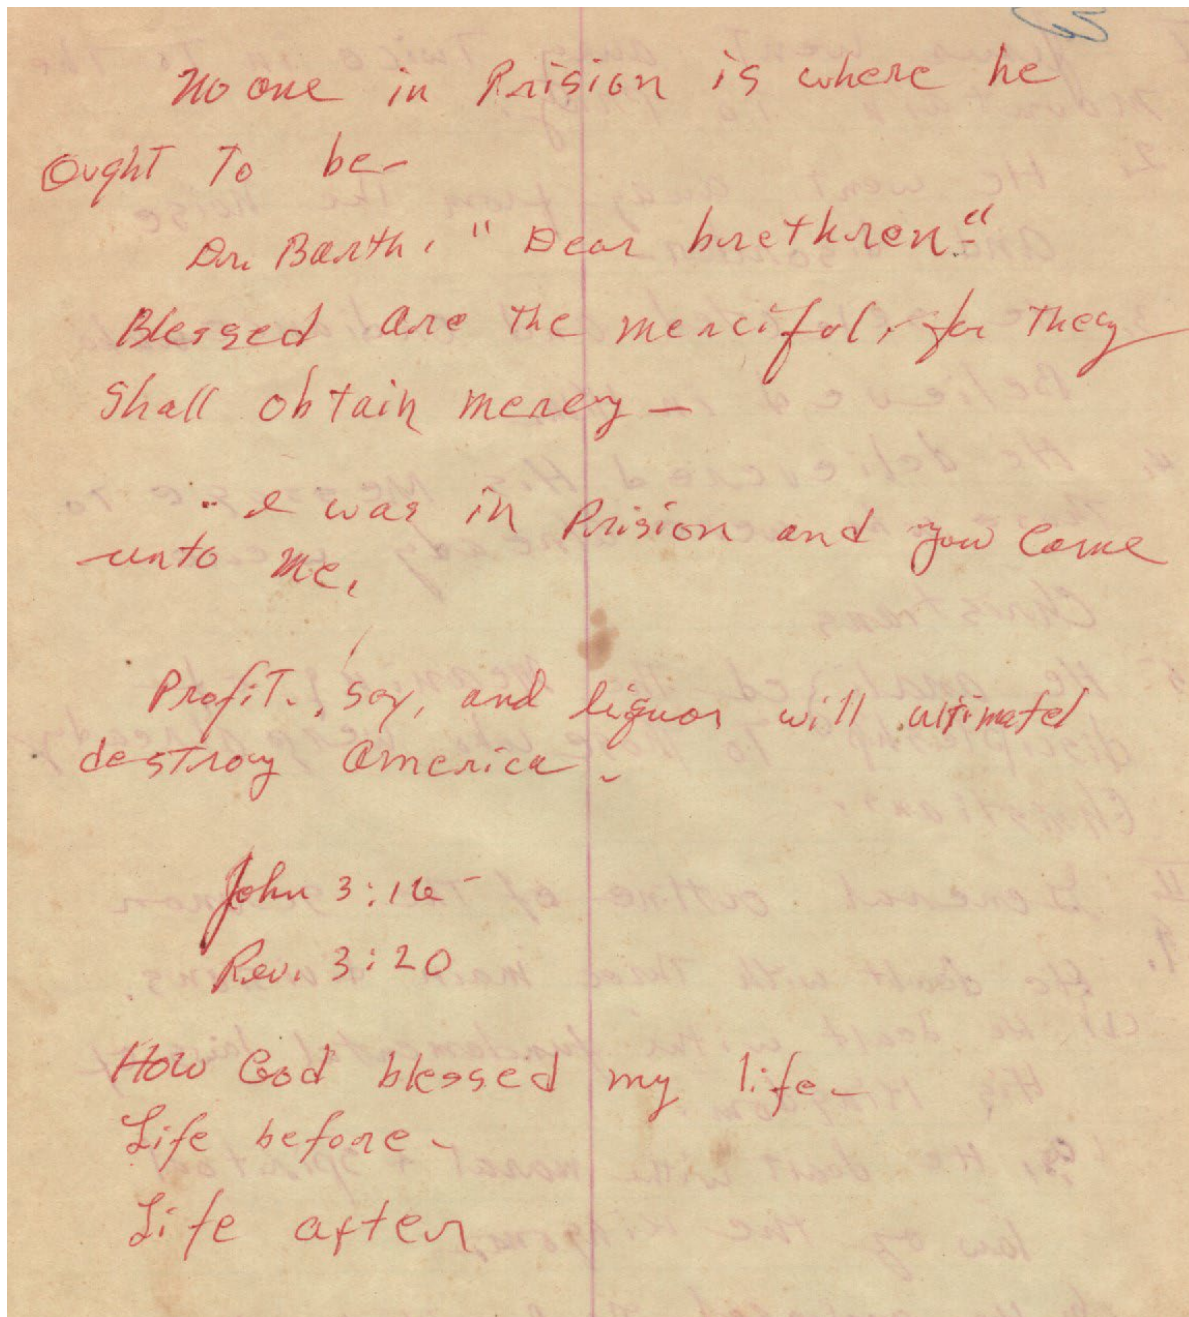 No one in Prision is where he
Ought To be-
Dr. Barth. "Dear brethren."
Blessed are the merciful, for They
Shall obtain mercy -
I was in Prision and you come
unto me.
Profit, soy, and liquor will ultimatel
destroy America.
John 3:16-
Rev. 3:20
How God blessed my life-
Life before-
Life after